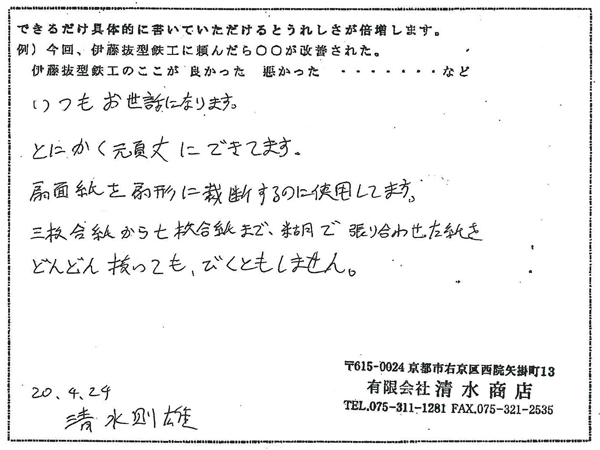 できるだけ具体的に書いていただけるとうれしさが倍増します。
例）今回、伊藤抜型鉄工に頼んだら〇〇が改善された。
伊藤抜型鉄工のここが 良かった 悪かった ・・・・・・・など
いつもお世話になります。
とにかく元頁丈にできてます。
扇面紙を扇形に裁断するのに使用してます。
三枚合紙から七枚合紙まで、糊で張り合わせた紙を
どんどん抜いても、びくともしません。
〒615-0024 京都市右京区西院矢掛町13
有限会社 清水商店
TEL.075-311-1281 FAX.075-321-2535
20.4.24
清水則雄